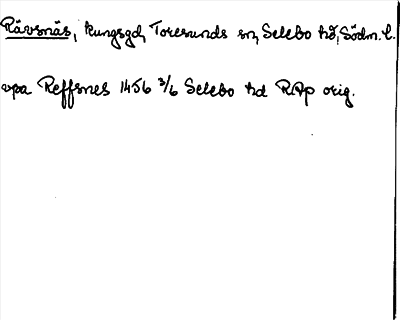 Rävsnäs, kungsgd, Toresunds sn, Selebo hd, Södm. l.
upa Reffsnes 1456 3/6 Selebo hd RAp orig.